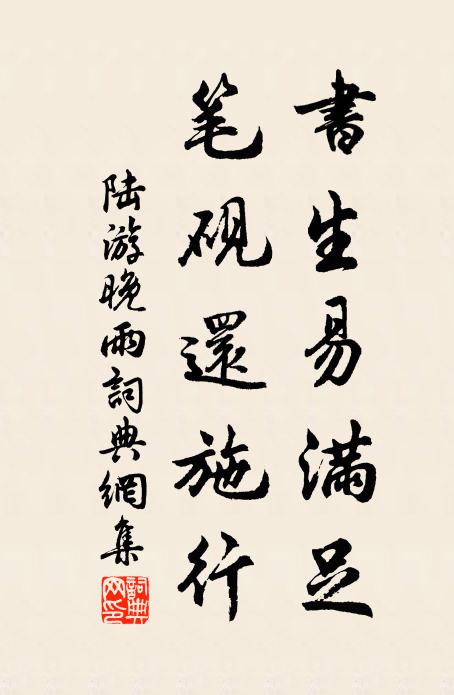 書生易滿足
笔硯還施行
陆游晚雨詞典網集
詞典
网印